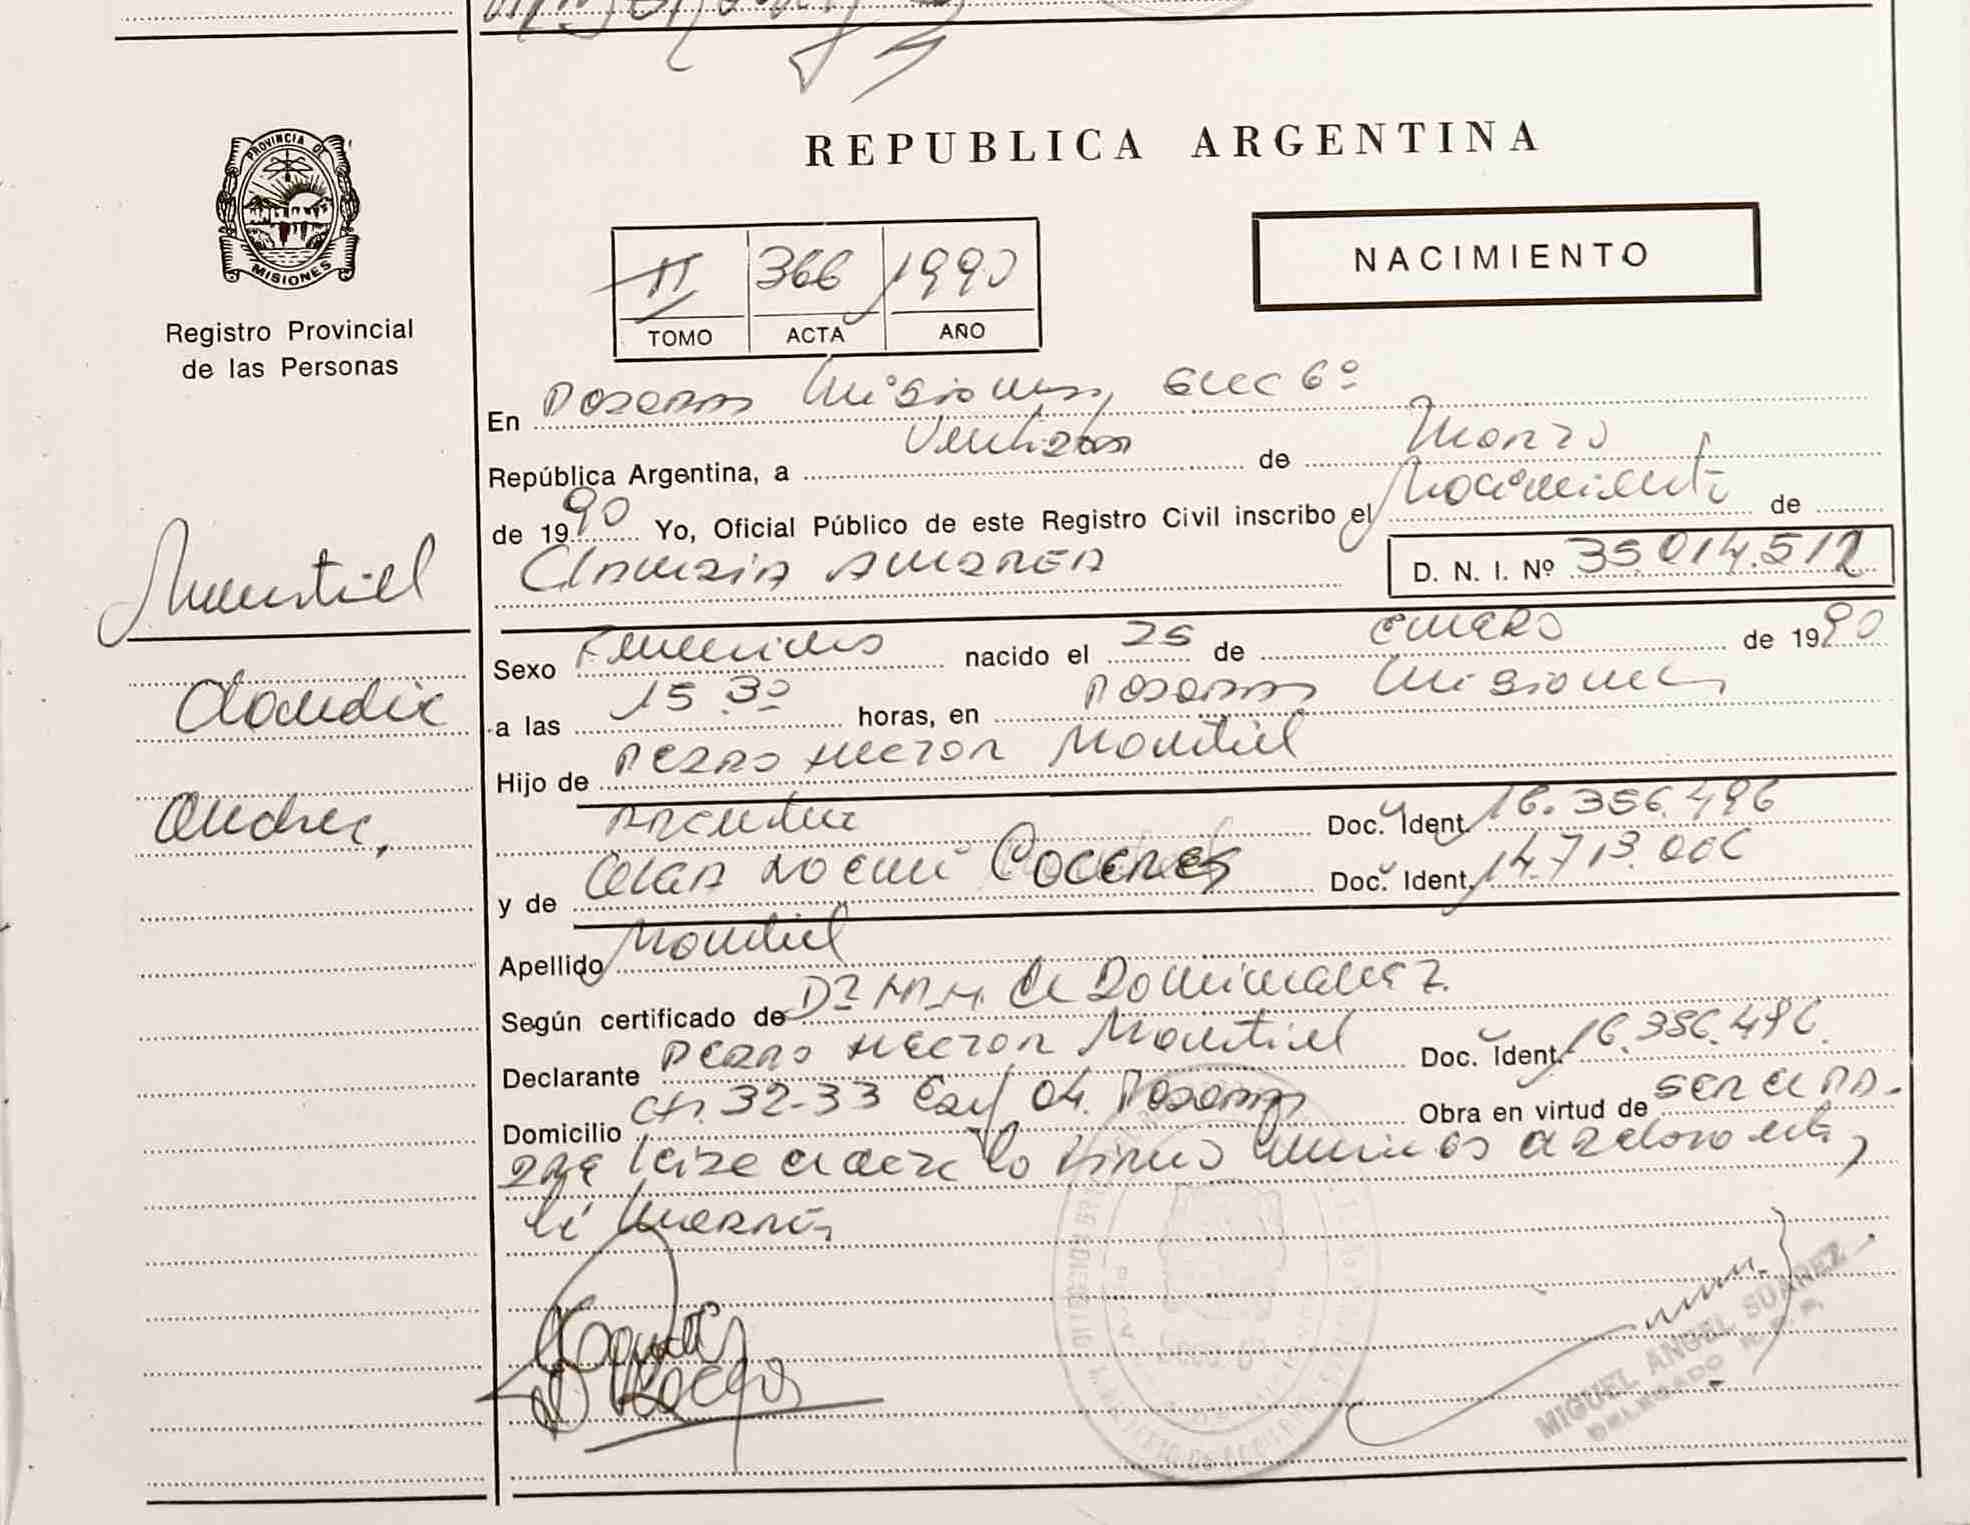 REPUBLICA ARGENTINA
PROVINCIA DE
MISIONES
Registro Provincial
de las Personas
NACIMIENTO
II 366 1990
TOMO ACTA AÑO
En Posadas Misiones, Secc 6º
República Argentina, a de Marzo
de 1990 Yo, Oficial Público de este Registro Civil inscribo el Nacimiento de
Claudia Andrea D. N. I. Nº 35.014.512
Montiel
Claudia
Andrea,
Sexo Femenino nacido el 25 de enero de 1990
a las 15.30 horas, en Posadas Misiones
Hijo de Pedro Hector Montiel
Doc. Ident. 16.356.496
y de Noemi Coceres Doc. Ident. 14.713.006
Apellido Montiel
Según certificado de Dominguez.
Declarante Pedro Hector Montiel Doc. Ident. 16.356.496.
Domicilio Ch. 32-33 04. Posadas Obra en virtud de ser el pa-
dre
MIGUEL ANGEL SUAREZ
DELEGADO R. P. P.